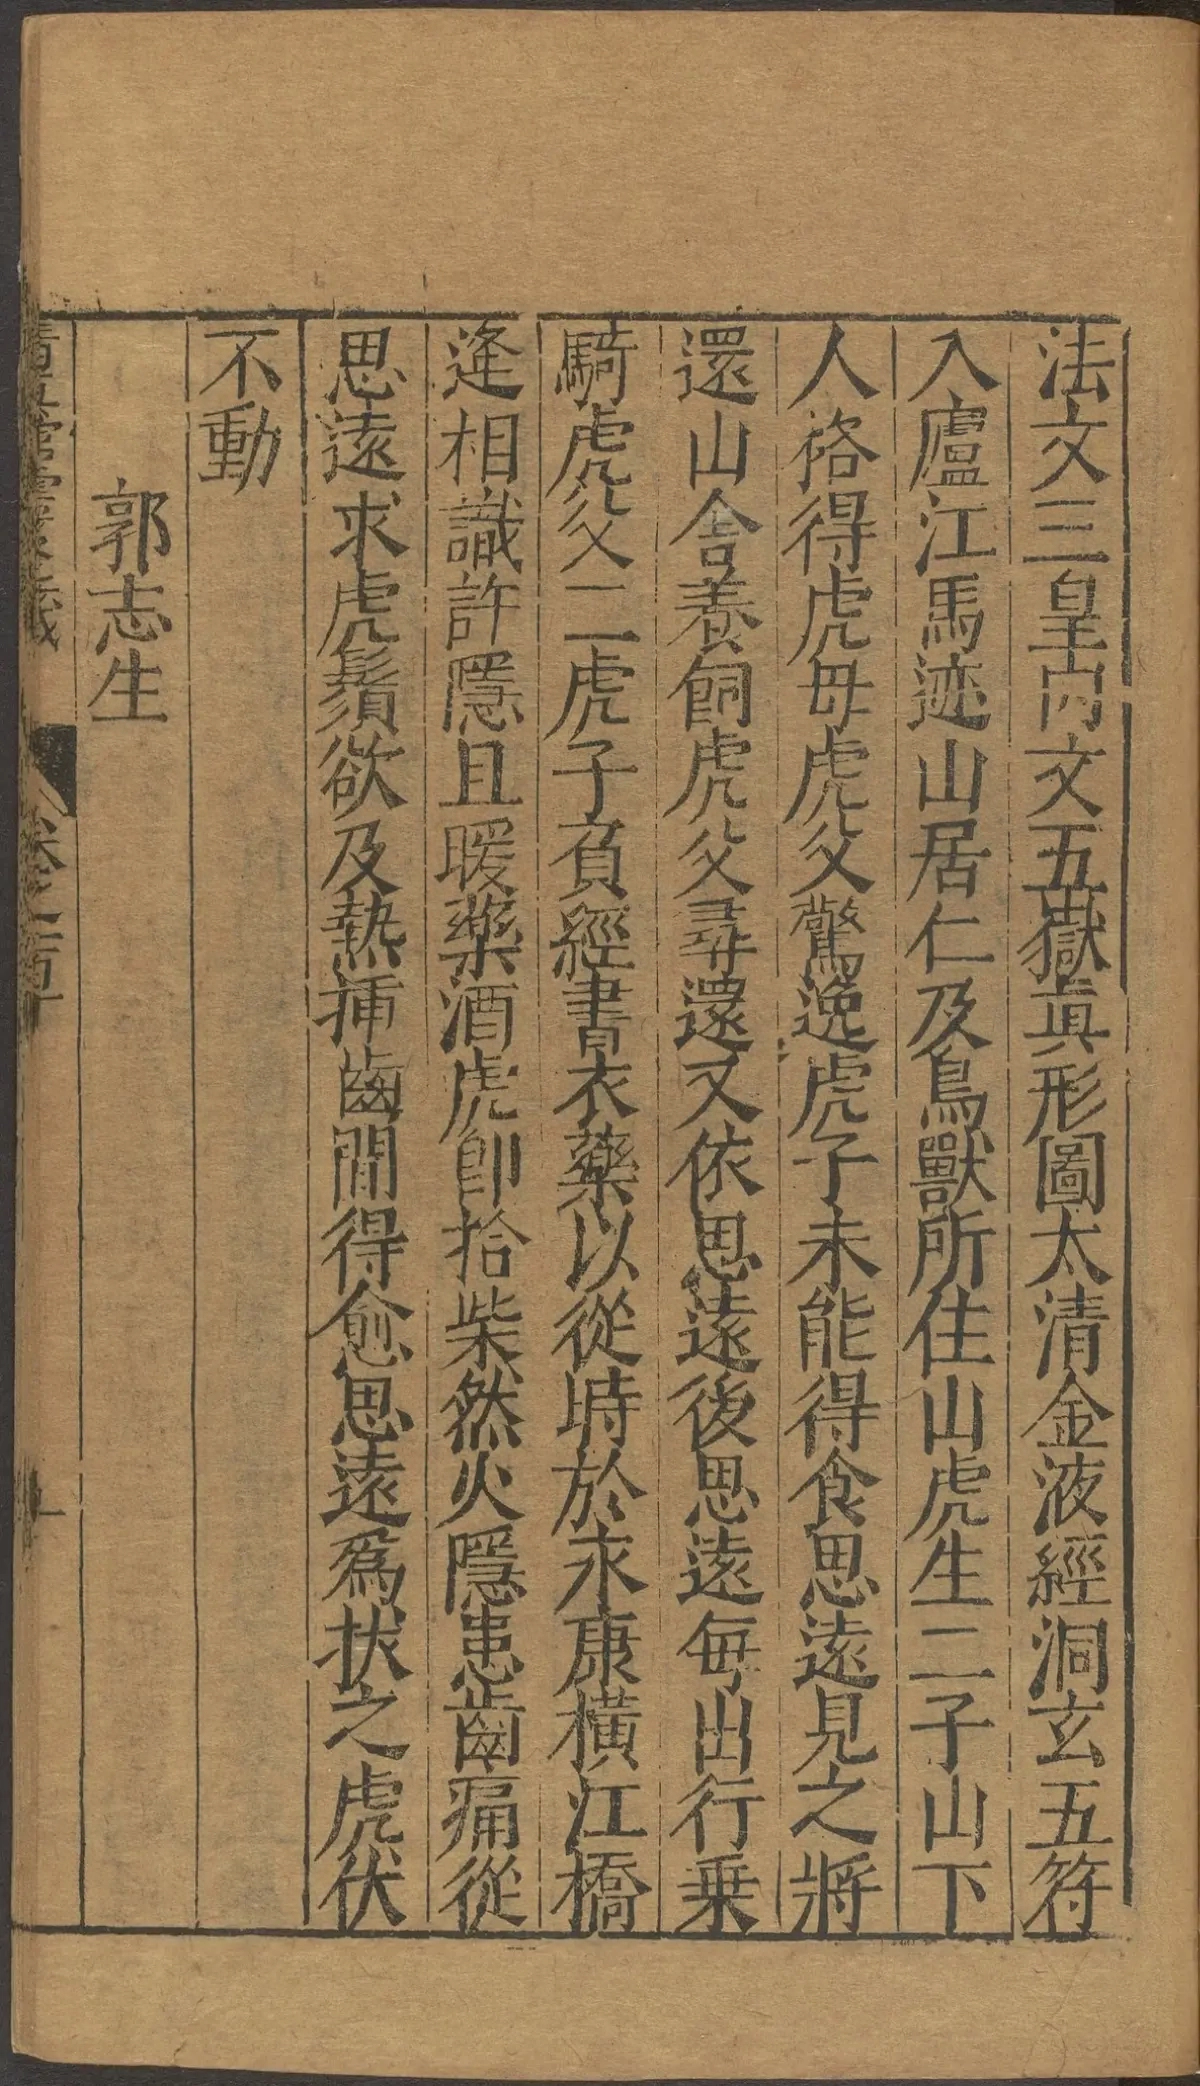 法文三皇內文五嶽眞形圖太清金液經洞玄五符
入廬江馬迹山居仁及鳥獸所住山虎生二子山下
人袼得虎母虎父驚逸虎子未能得食思遠見之將
還山舍養飼虎父尋還又依思遠後思遠每出行乗
騎虎父二虎子負經書衣藥以從時於永康橫江橋
逢相識許隱且暖藥酒虎卽拾柴然火隱患齒痛從
思遠求虎鬚欲及熱揷齒間得愈思遠爲拔之虎伏
不動
郭志生